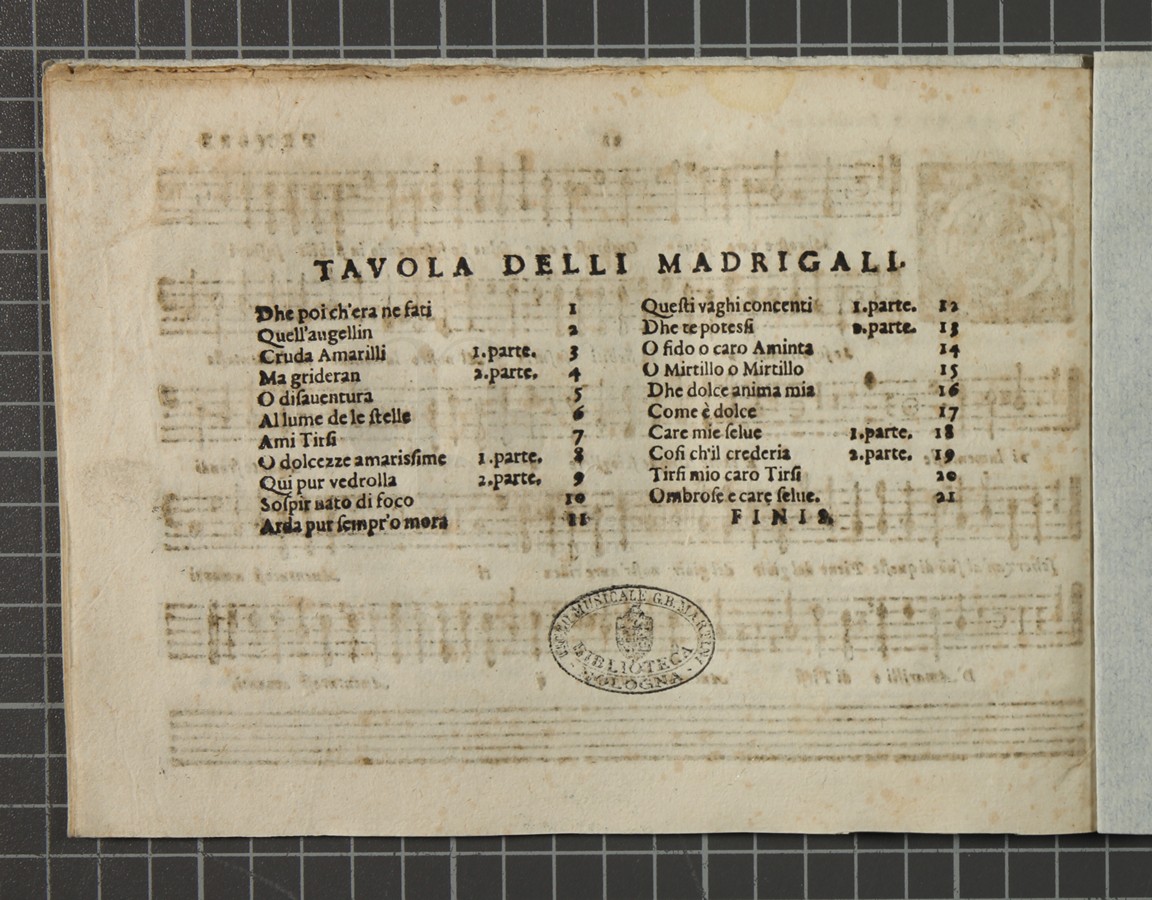 TAVOLA DELLI MADRIGALI.
Dhe poi ch'era ne fati 1
Quell'augellin 2
Cruda Amarilli 1.parte. 3
Ma grideran 2.parte. 4
O diſauentura 5
Al lume de le ſtelle 6
Ami Tirſi 7
O dolcezze amariſſime 1.parte. 8
Qui pur vedrolla 2.parte. 9
Soſpir nato di foco 10
Arda pur ſempr'o mora 11
Queſti vaghi concenti 1.parte. 12
Dhe te poteſſi 2.parte. 13
O fido o caro Aminta 14
O Mirtillo o Mirtillo 15
Dhe dolce anima mia 16
Come è dolce 17
Care mie ſelue 1.parte. 18
Coſi ch'il crederia 2.parte. 19
Tirſi mio caro Tirſi 20
Ombroſe e care ſelue. 21
FINIS.
MUSICALE G.B. MARTINI
BIBLIOTECA
BOLOGNA